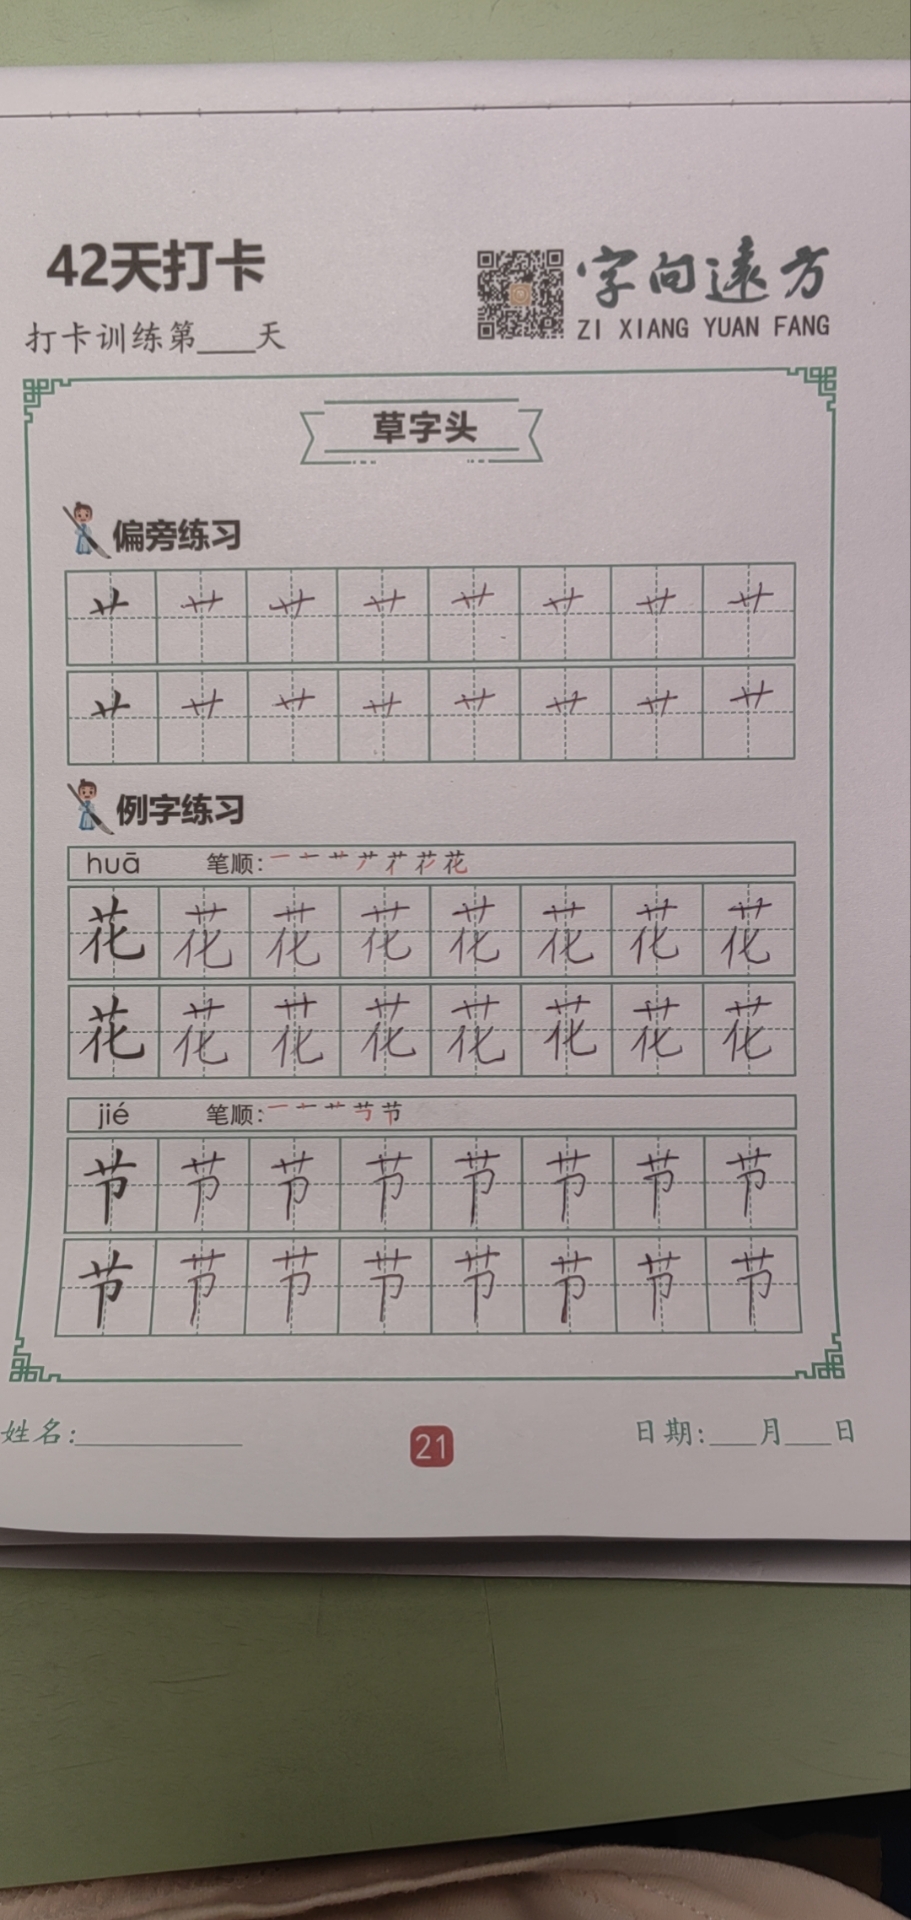 42天打卡
字向远方
ZI XIANG YUAN FANG
打卡训练第____天
草字头
偏旁练习
艹 艹 艹 艹 艹 艹 艹 艹
艹 艹 艹 艹 艹 艹 艹 艹
例字练习
huā 笔顺:
花 花 花 花 花 花 花 花
花 花 花 花 花 花 花 花
jié 笔顺:
节 节 节 节 节 节 节 节
节 节 节 节 节 节 节 节
姓名:__________ 21 日期:___月___日